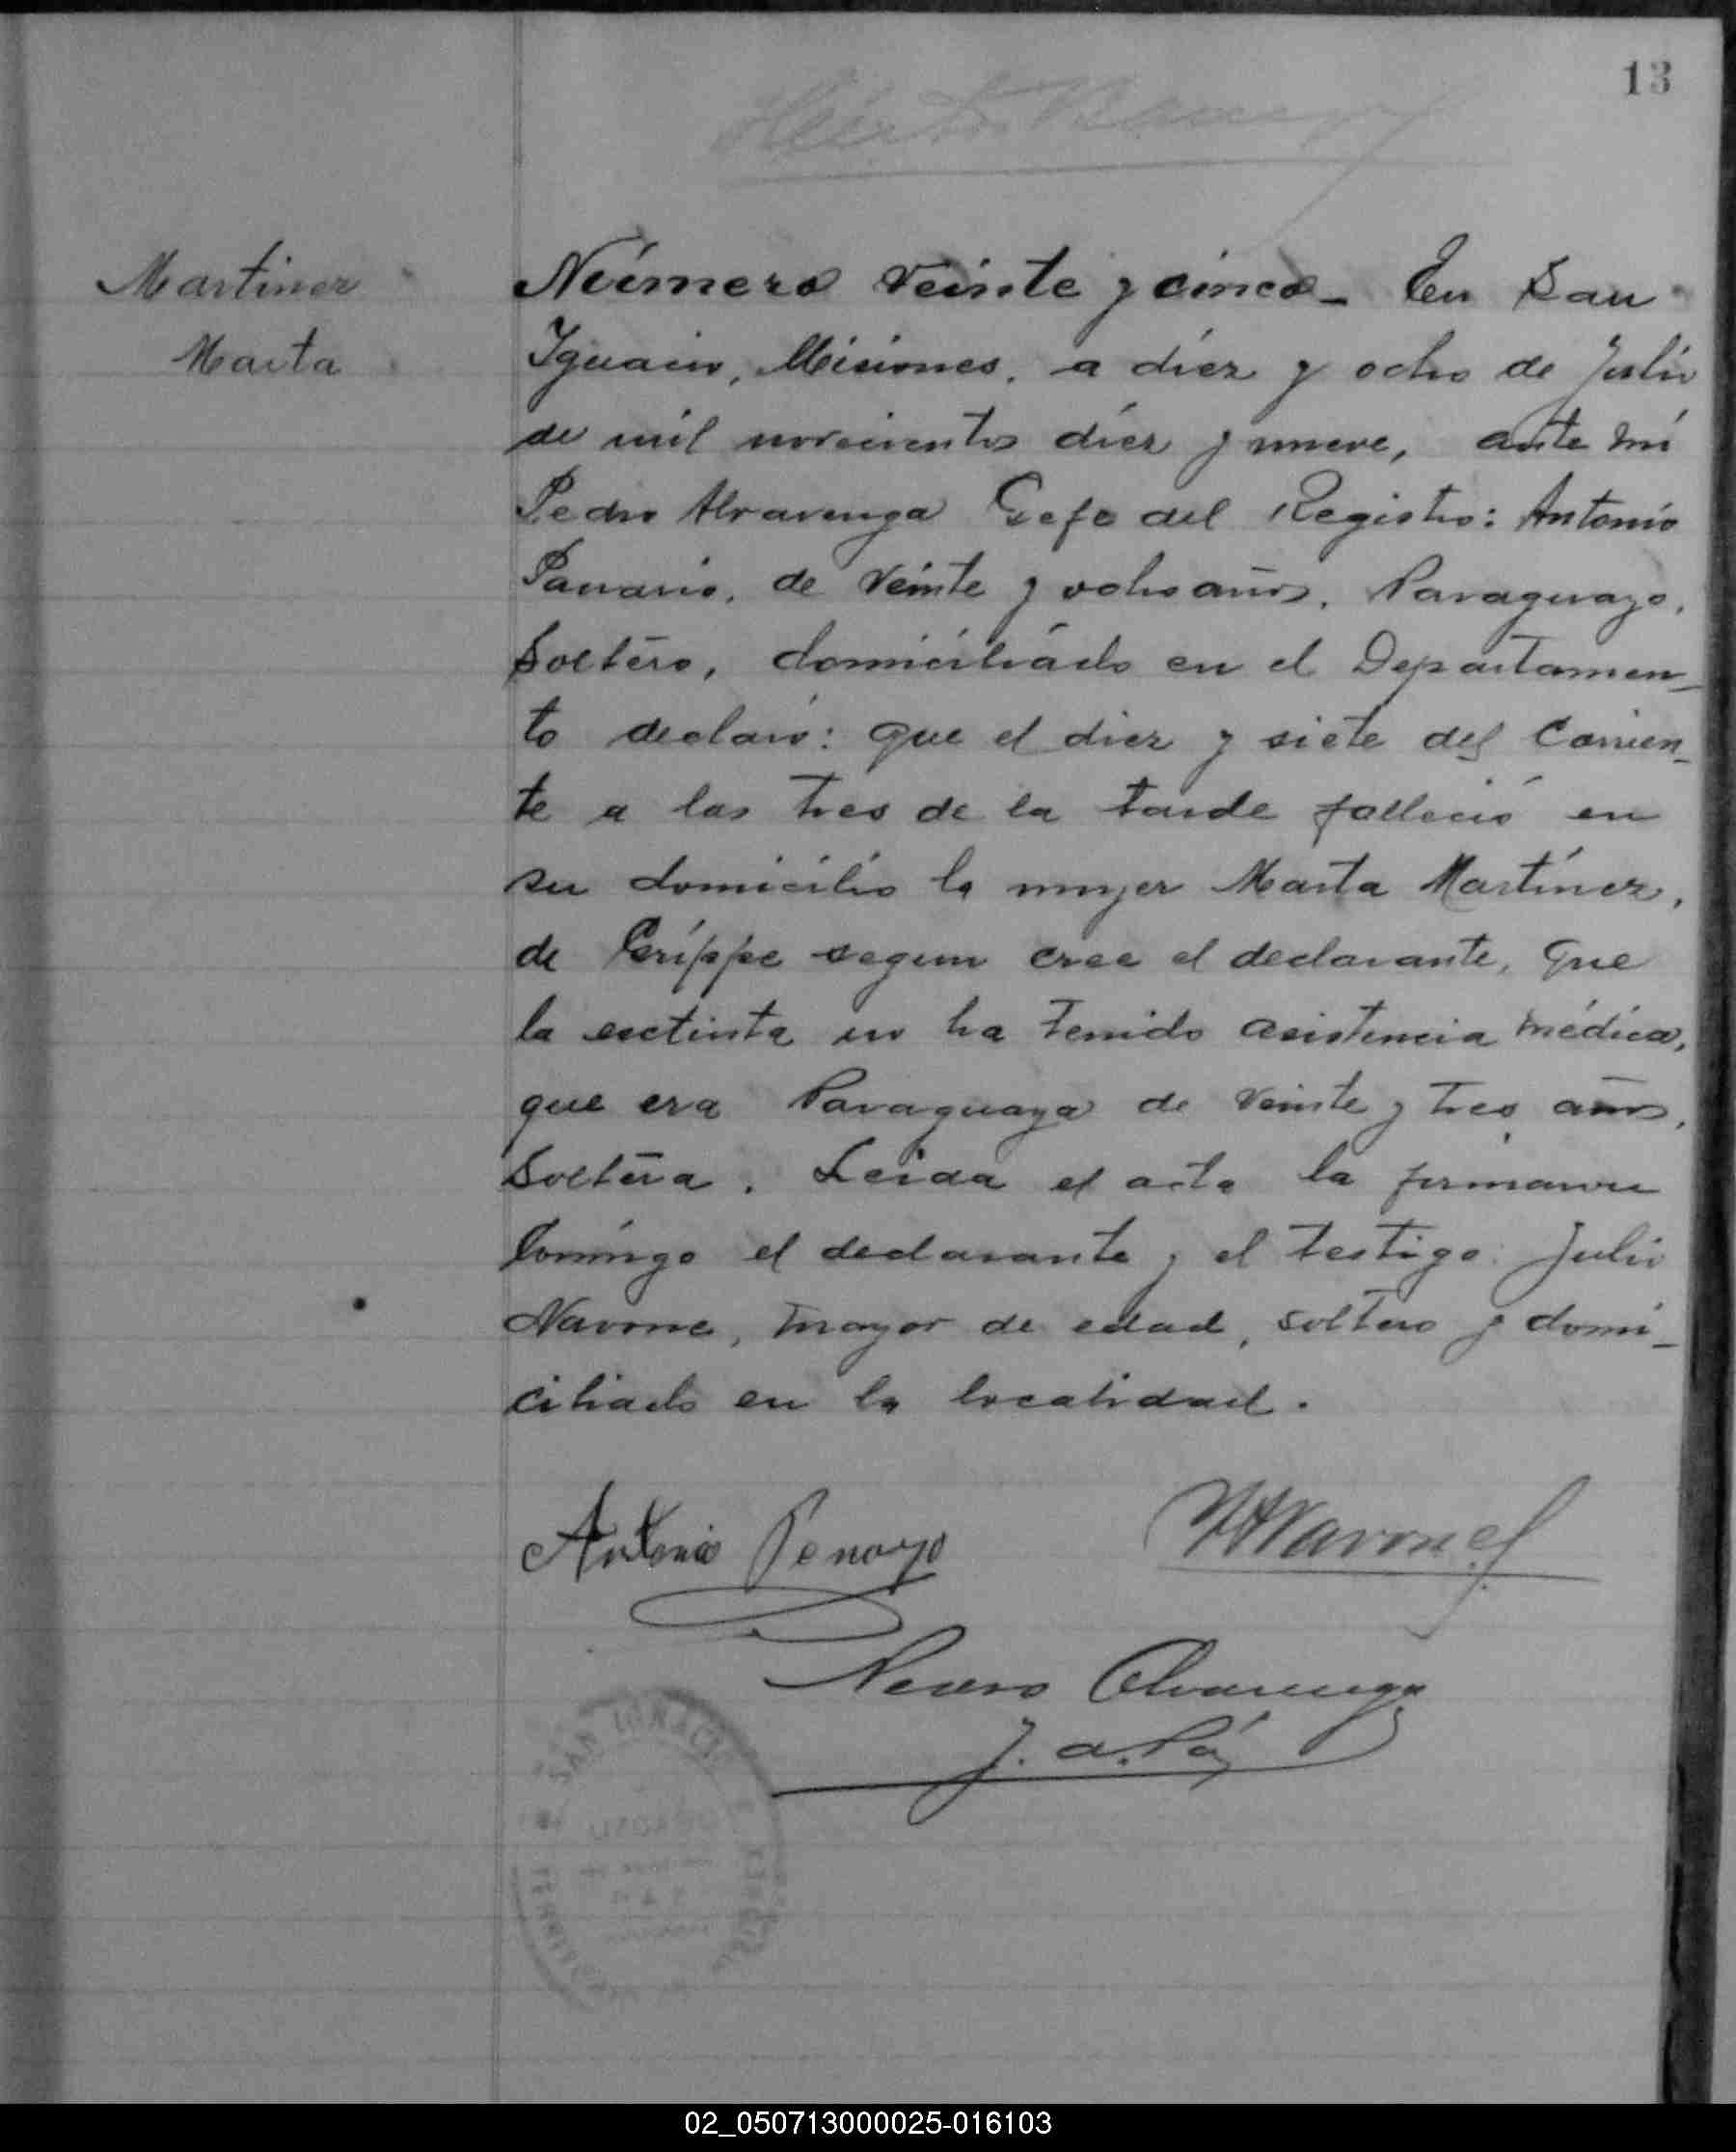 13
Martinez
Marta
Número veinte y cinco_ En San
Ygnacio, Misiones, a diez y ocho de Julio
de mil novecientos diez y nueve, ante mi
Pedro Alvarenga Gefe del Registro: Antonio
de veinte y ocho años, Paraguayo,
Soltero, domiciliado en el Departamen_
to declaró: que el diez y siete del Corrien_
te a las tres de la tarde falleció en
su domicilio la mujer Marta Martínez,
de Grippe segun cree el declarante, que
la exctinta no ha tenido asistencia médica,
que era Paraguaya de veinte y tres años,
Soltera. Leida el acta la firmaron
Comingo el declarante y el testigo: Julio
Navone, mayor de edad, soltero y domi_
ciliado en la localidad.
Antonio Penayo
Navone
Pedro Alvarenga
J. de Paz
SAN IGNACIO
02_050713000025-016103